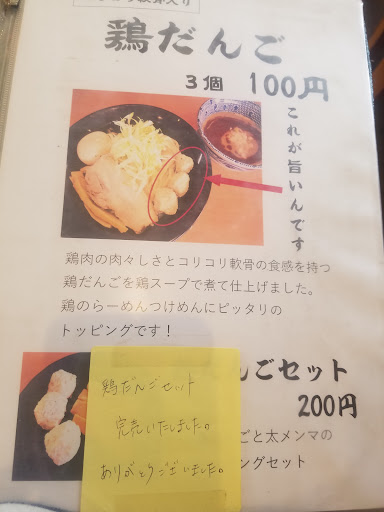 鶏だんご
3個 100円
これが旨いんです
鶏肉の肉々しさとコリコリ軟骨の食感を持つ
鶏だんごを鶏スープで煮て仕上げました。
鶏のらーめんつけめんにピッタリの
トッピングです！
んごセット
200円
ごと太メンマの
ングセット
鶏だんごセット
完売いたしました。
ありがとうございました。